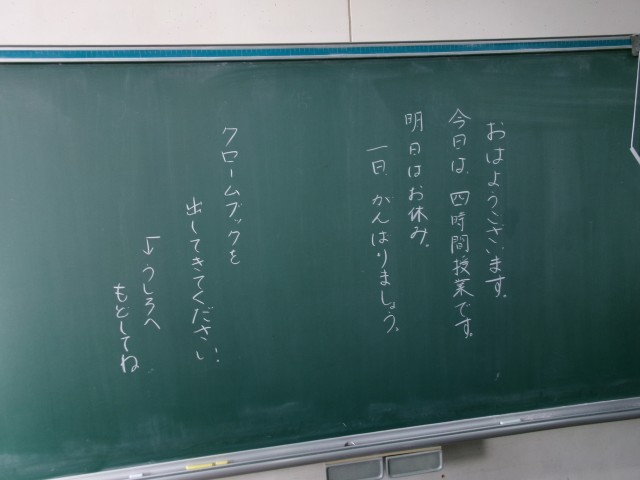 おはようございます。
今日は、四時間授業です。
明日はお休み。
一日、がんばりましょう。
クロームブックを
出してきてください。
↓うしろへ
もどしてね